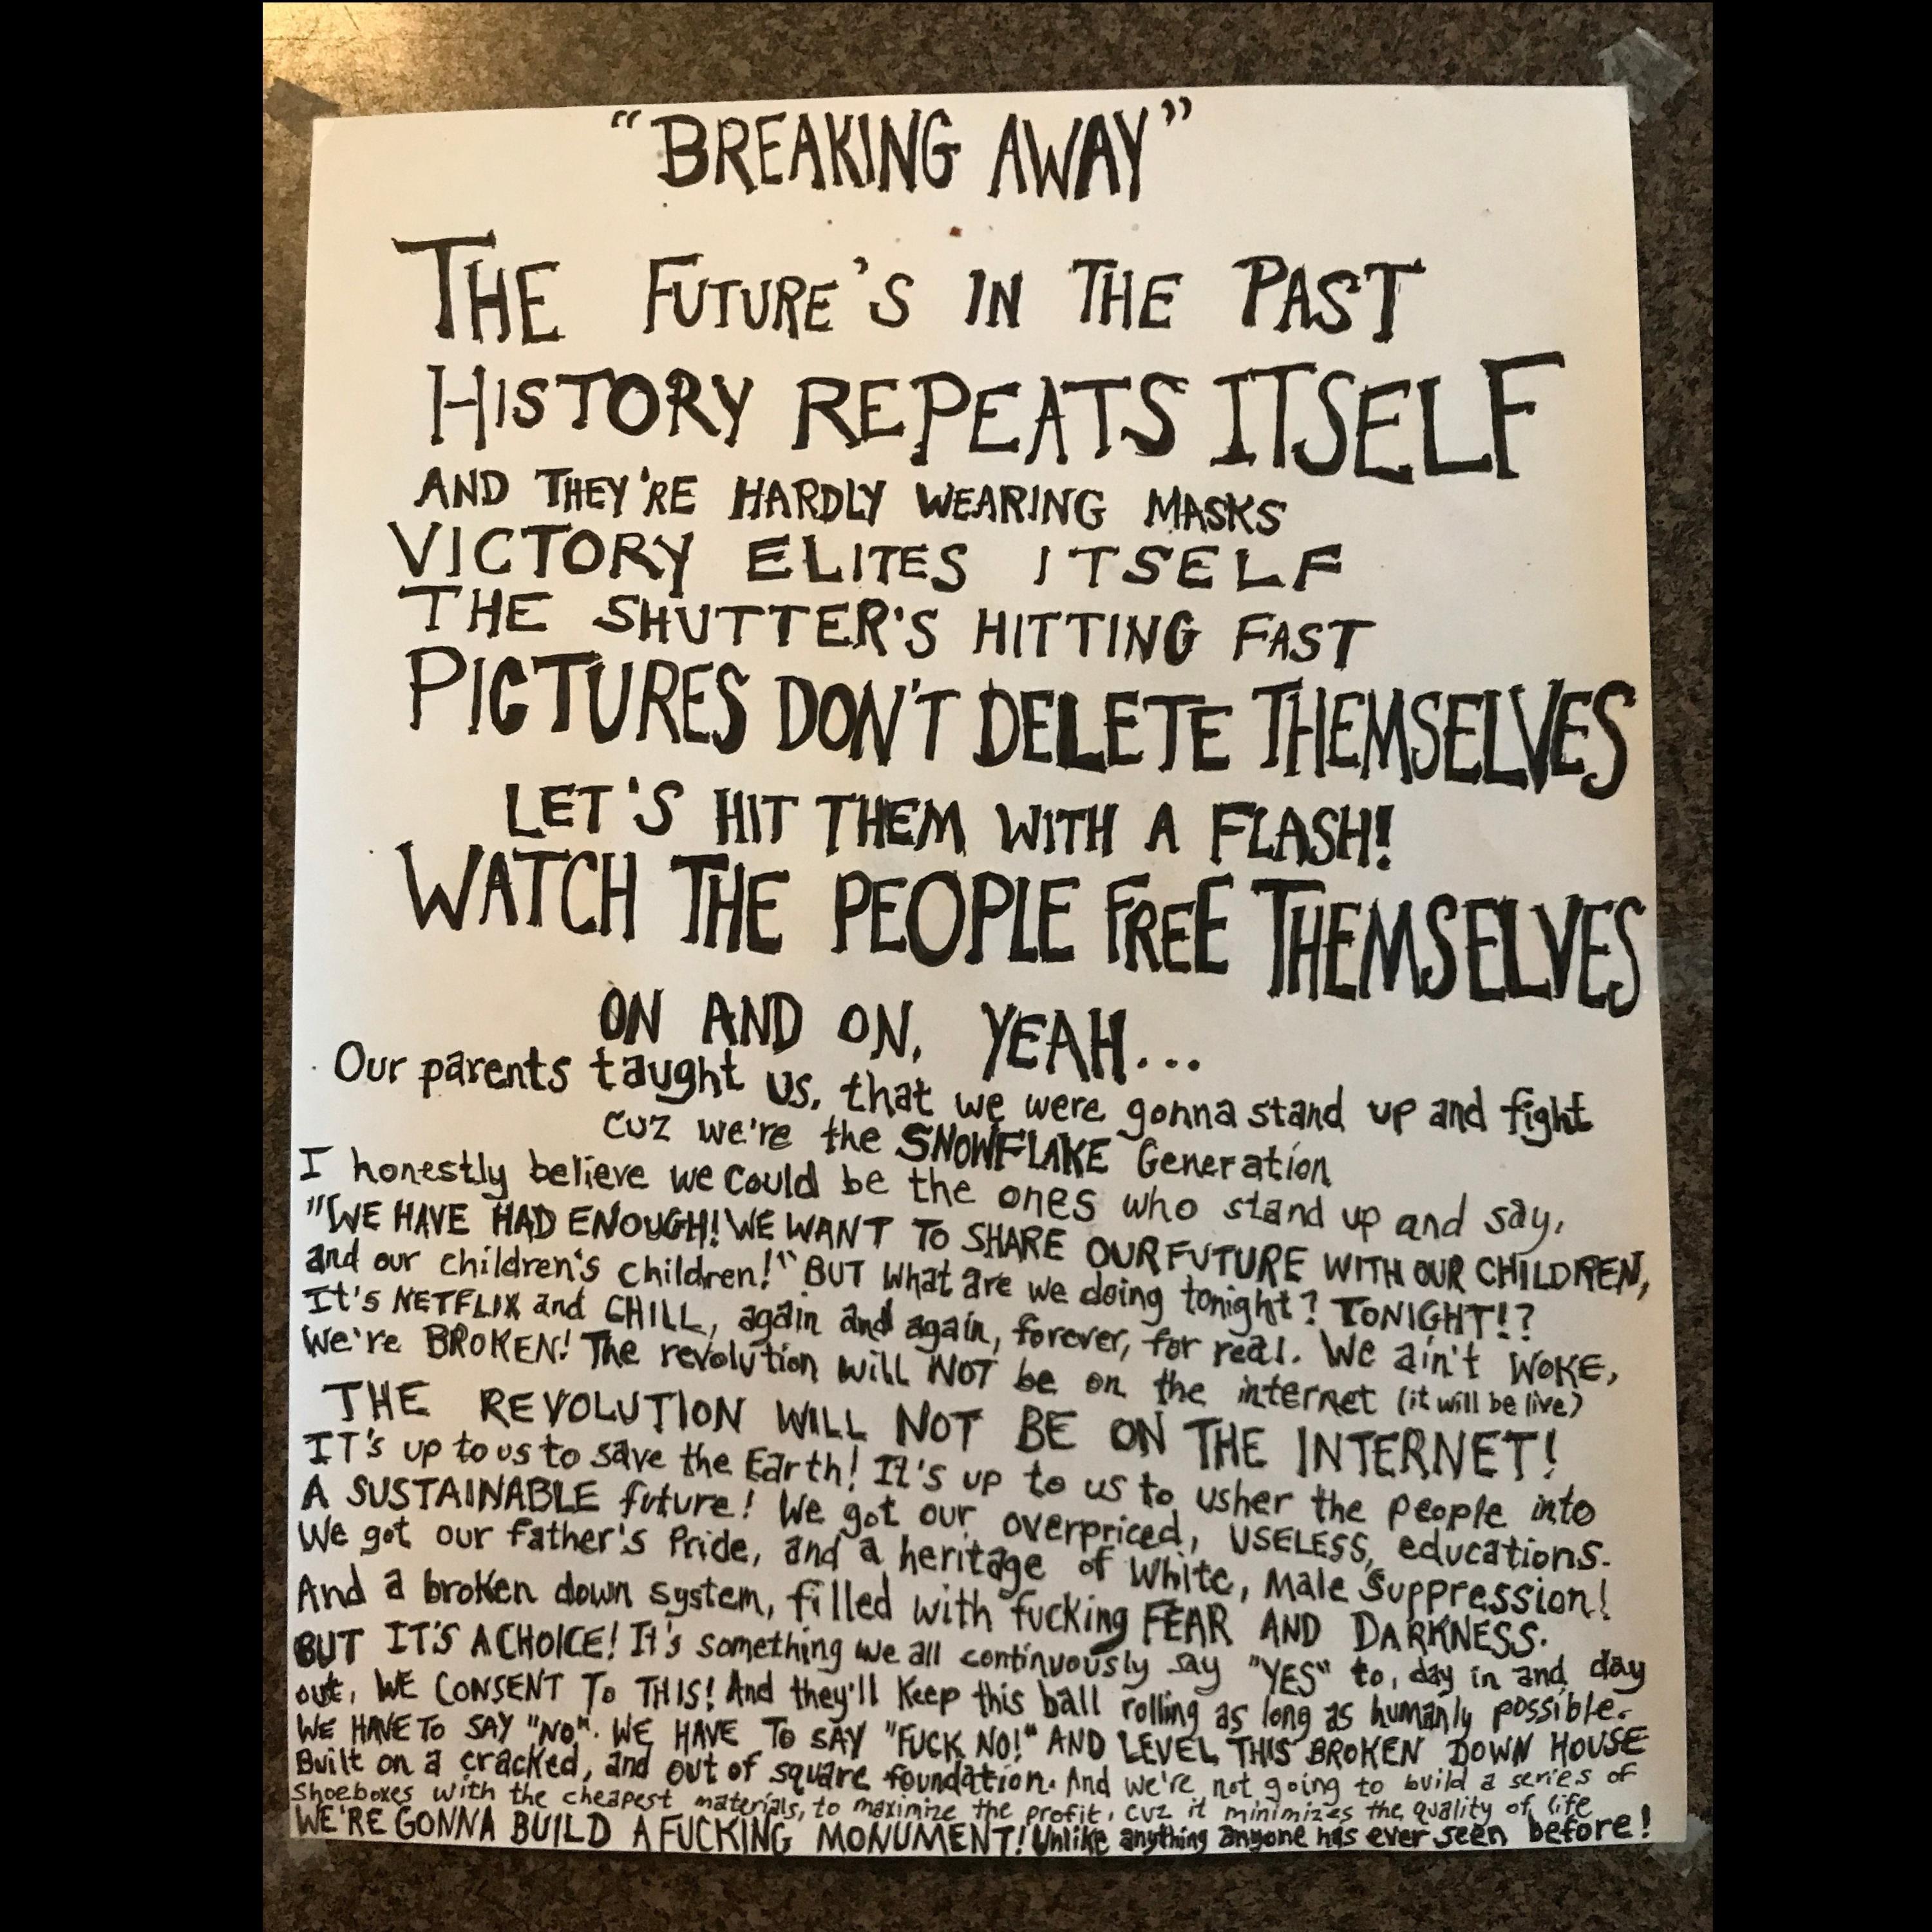 "BREAKING AWAY"
THE FUTURE'S IN THE PAST
HISTORY REPEATS ITSELF
AND THEY'RE HARDLY WEARING MASKS
VICTORY ELITES ITSELF
THE SHUTTER'S HITTING FAST
PICTURES DON'T DELETE THEMSELVES
LET'S HIT THEM WITH A FLASH!
WATCH THE PEOPLE FREE THEMSELVES
ON AND ON, YEAH...
Our parents taught us, that we were gonna stand up and fight
cuz we're the SNOWFLAKE Generation
I honestly believe we could be the ones who stand up and say,
"WE HAVE HAD ENOUGH! WE WANT TO SHARE OUR FUTURE WITH OUR CHILDREN,
and our children's children!" BUT what are we doing tonight? TONIGHT!?
It's NETFLIX and CHILL, again and again, forever, for real. We ain't WOKE,
We're BROKEN! The revolution will NOT be on the internet (it will be live)
THE REVOLUTION WILL NOT BE ON THE INTERNET!
IT's up to us to save the Earth! It's up to us to usher the people into
A SUSTAINABLE future! We got our overpriced, USELESS, educations.
We got our father's Pride, and a heritage of White, Male Suppression!
And a broken down system, filled with fucking FEAR AND DARKNESS.
BUT IT'S A CHOICE! It's something we all continuously say "YES" to, day in and day
out, WE CONSENT TO THIS! And they'll keep this ball rolling as long as humanly possible.
WE HAVE TO SAY "NO". WE HAVE TO SAY "FUCK NO!" AND LEVEL THIS BROKEN DOWN HOUSE
Built on a cracked, and out of square foundation. And we're not going to build a series of
shoeboxes with the cheapest materials, to maximize the profit, cuz it minimizes the quality of life
WE'RE GONNA BUILD A FUCKING MONUMENT! Unlike anything anyone has ever seen before!